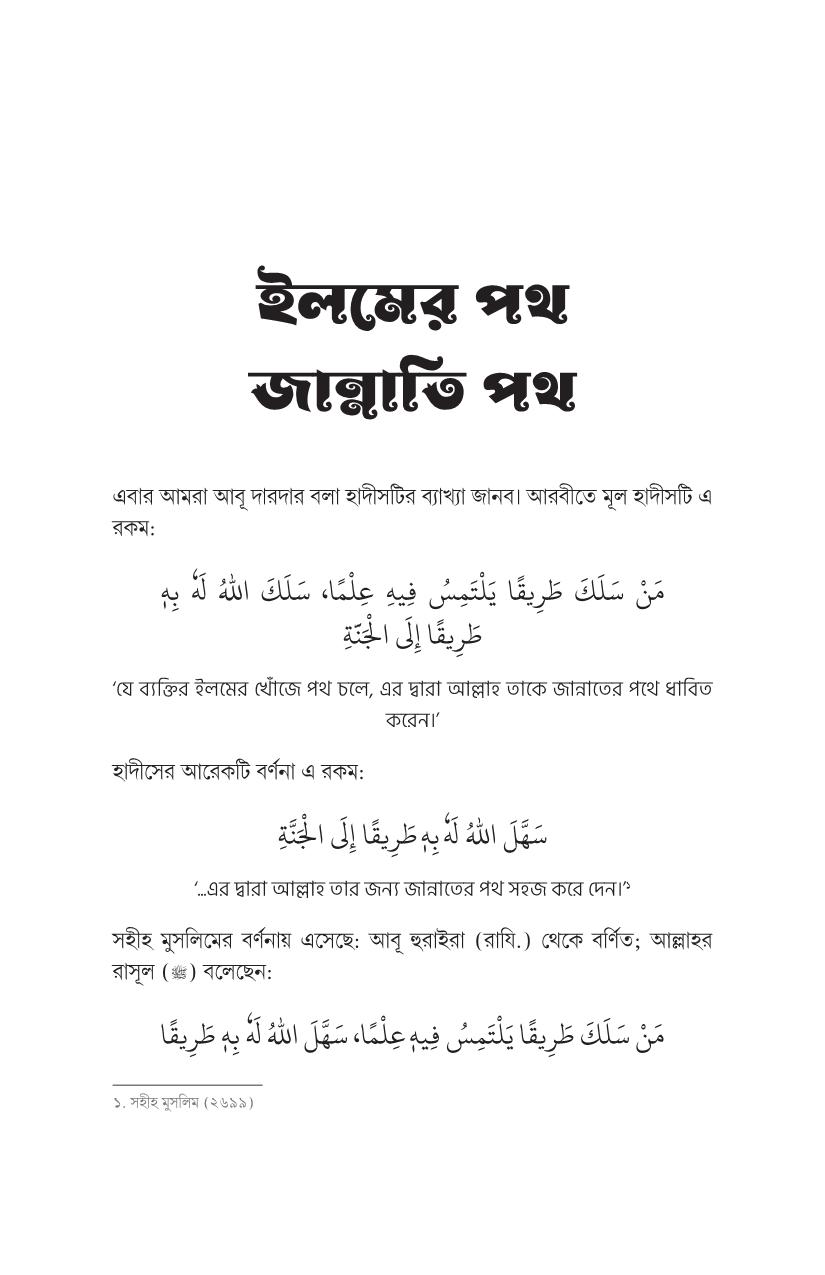 ইলমের পথ
জান্নাতি পথ
এবার আমরা আবূ দারদার বলা হাদীসটির ব্যাখ্যা জানব। আরবীতে মূল হাদীসটি এ
রকম:
مَنْ سَلَكَ طَرِيقًا يَلْتَمِسُ فِيهِ عِلْمًا، سَلَكَ اللهُ لَهٗ بِهٖ
طَرِيقًا إِلَى الْجَنَّةِ
‘যে ব্যক্তির ইলমের খোঁজে পথ চলে, এর দ্বারা আল্লাহ তাকে জান্নাতের পথে ধাবিত
করেন।’
হাদীসের আরেকটি বর্ণনা এ রকম:
سَهَّلَ اللهُ لَهٗ بِهٖ طَرِيقًا إِلَى الْجَنَّةِ
‘...এর দ্বারা আল্লাহ তার জন্য জান্নাতের পথ সহজ করে দেন।’১
সহীহ মুসলিমের বর্ণনায় এসেছে: আবূ হুরাইরা (রাযি.) থেকে বর্ণিত; আল্লাহর
রাসূল (ﷺ) বলেছেন:
مَنْ سَلَكَ طَرِيقًا يَلْتَمِسُ فِيهِ عِلْمًا، سَهَّلَ اللهُ لَهٗ بِهٖ طَرِيقًا
১. সহীহ মুসলিম (২৬৯৯)